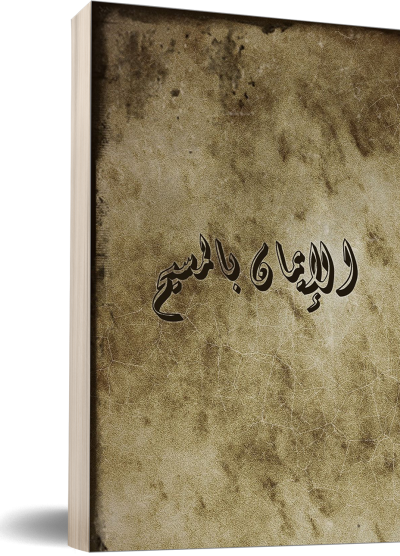 الإيمان بالمسيح